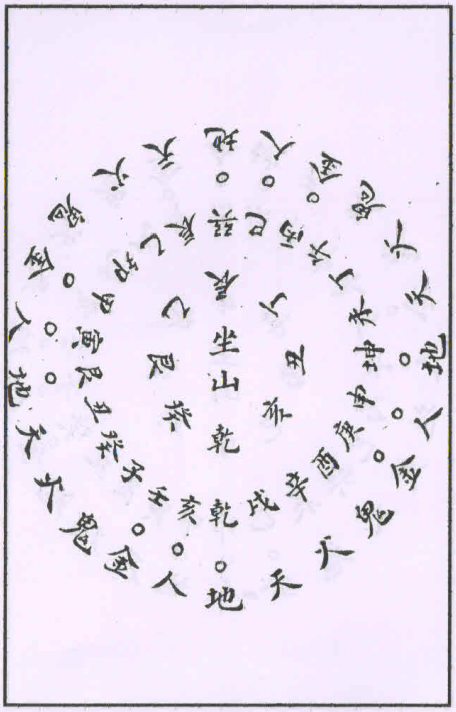 地人金鬼火天地人金鬼火天地人金鬼火天地人金鬼火天
巽巳丙午丁未坤申庚酉辛戌乾亥壬子癸丑艮寅甲卯乙辰
辰丁丑亥乾癸艮乙
坐山